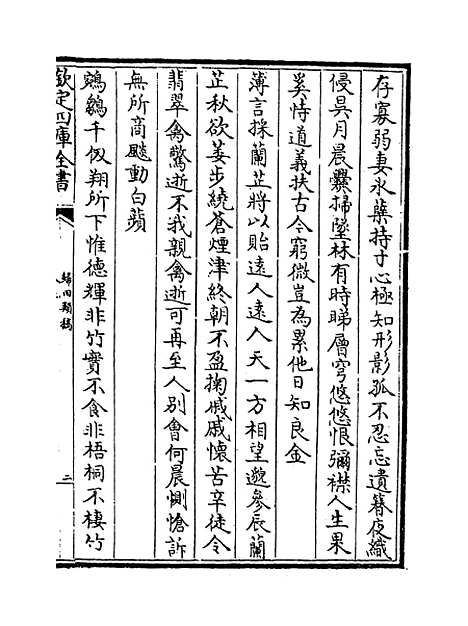 存寡弱妻永蘖持寸心極知形影孤不忍忘遺簪夜織
侵昃月晨爨掃墜林有時睇層穹悠悠恨彌襟人生果
奚恃道義扶古今窮微豈為累他日知良金
薄言採蘭芷將以貽遠人遠入天一方相望邈參辰蘭
芷秋欲萎步繞蒼煙津終朝不盈掬戚戚懷苦辛徒令
翡翠禽驚逝不我親禽逝可再至人別會何晨惻愴訴
無所商颷動白蘋
鵷鶵千仭翔所下惟德輝非竹實不食非梧桐不棲竹
欽定四庫全書
歸田類稿
二